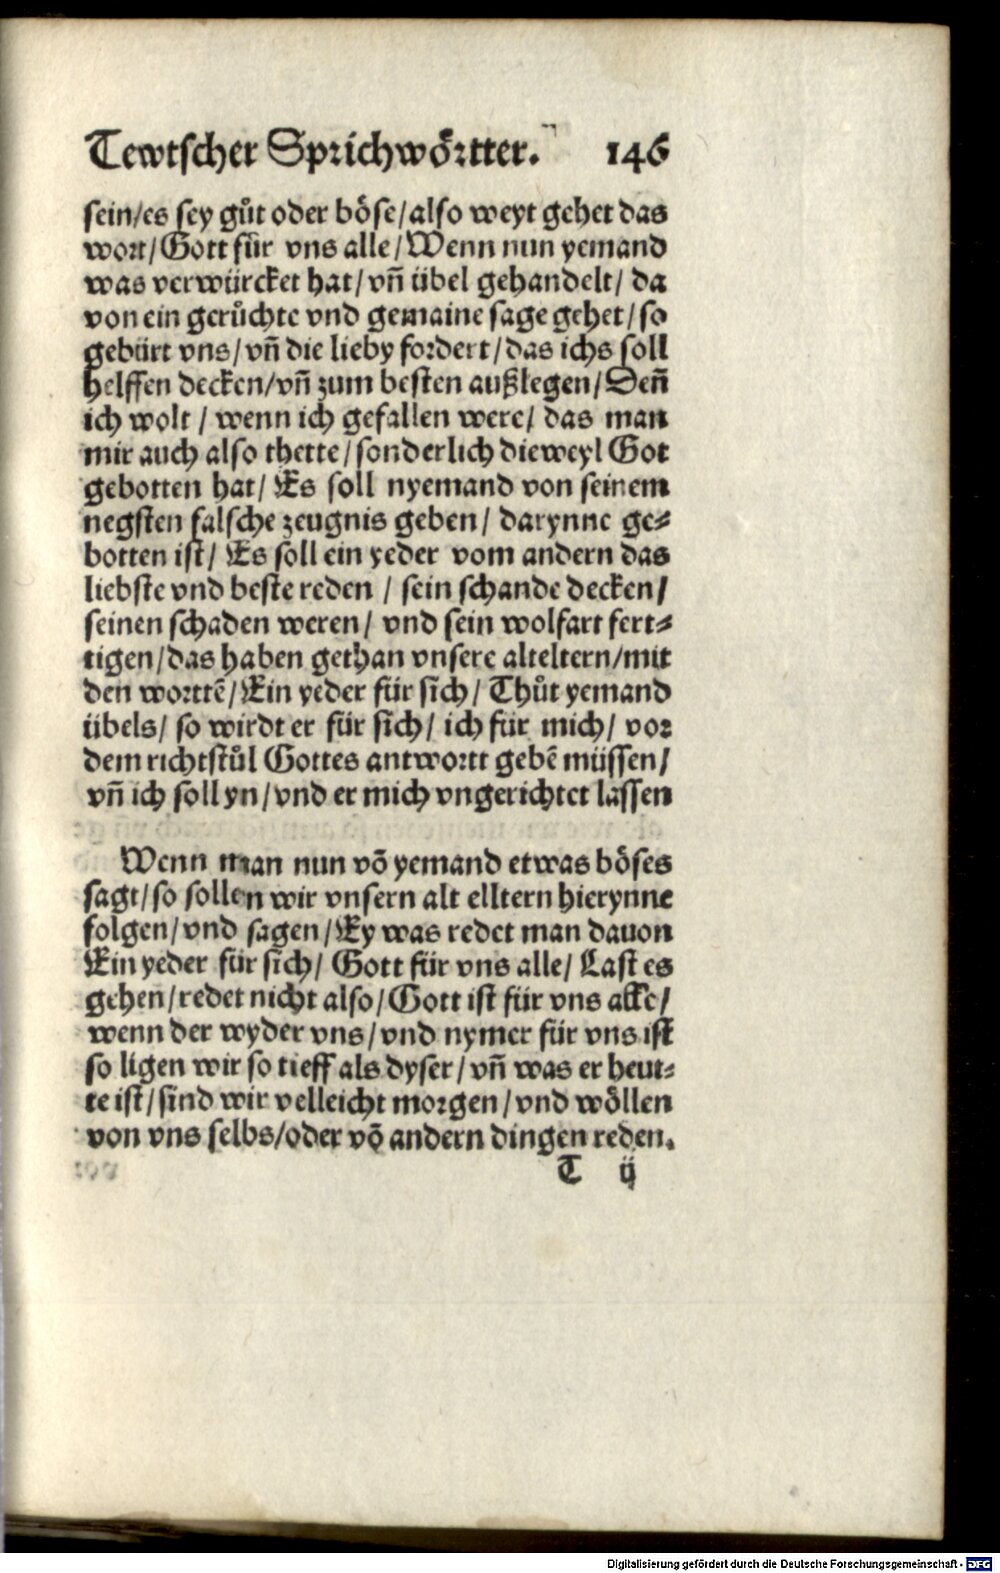 Tewtscher Sprichwoͤrtter. 146
sein/es sey guͦt oder boͤse/also weyt gehet das
wort/Gott für vns alle/Wenn nun yemand
was verwürcket hat/vn̄ übel gehandelt/ da
von ein geruͤchte vnd gemaine sage gehet/so
gebürt vns/vn̄ die lieby fordert/das ichs soll
helffen decken/vn̄ zum besten außlegen/Den̄
ich wolt / wenn ich gefallen were/ das man
mir auch also thette/sonderlich dieweyl Got
gebotten hat/ Es soll nyemand von seinem
negsten falsche zeugnis geben/ darynne ge⸗
botten ist/ Es soll ein yeder vom andern das
liebste vnd beste reden / sein schande decken/
seinen schaden weren/ vnd sein wolfart fert⸗
tigen/das haben gethan vnsere alteltern/mit
den wortte᷃/Ein yeder für sich/ Thuͦt yemand
übels/ so wirdt er für sich/ ich für mich/ vor
dem richtstuͦl Gottes antwortt gebē müssen/
vn̄ ich soll yn/vnd er mich vngerichtet lassen
Wenn man nun vō yemand etwas boͤses
sagt/so sollen wir vnsern alt elltern hierynne
folgen/vnd sagen/Ey was redet man dauon
Ein yeder für sich/ Gott für vns alle/ Last es
gehen/redet nicht also/Gott ist für vns alle/
wenn der wyder vns/vnd nymer für vns ist
so ligen wir so tieff als dyser/vn̄ was er heut⸗
te ist/sind wir velleicht morgen/vnd woͤllen
von vns selbs/oder vō andern dingen reden.
T ij
Digitalisierung gefördert durch die Deutsche Forschungsgemeinschaft - DFG